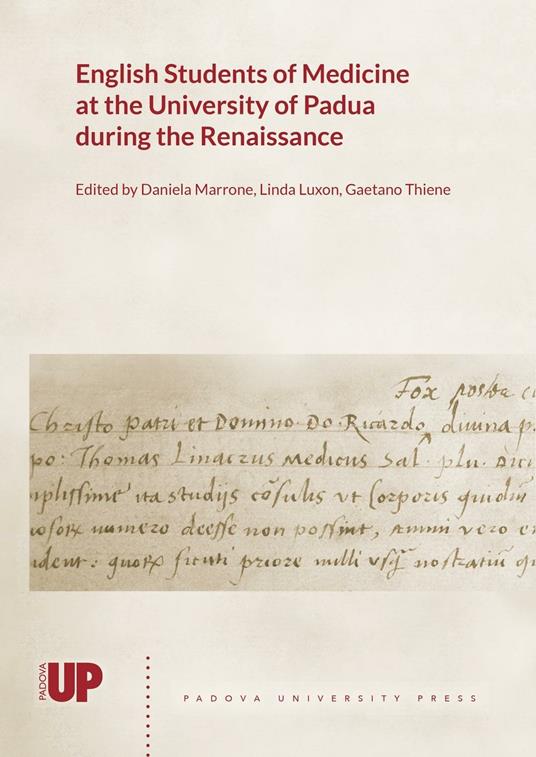 English Students of Medicine
at the University of Padua
during the Renaissance
Edited by Daniela Marrone, Linda Luxon, Gaetano Thiene
Fox postea
Christo patri et Domino Do. Ricardo divina p
po: Thomas Linacrus Medicus Sal. plu. Dici
mplissime ita studijs cōsulis vt Corporis quidm
numero deesse non possint, Animi vero
ident: priore nulli nostratiū
PADOVA UP
PADOVA UNIVERSITY PRESS